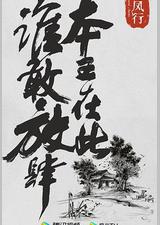 凤行
本王在此
谁敢放肆